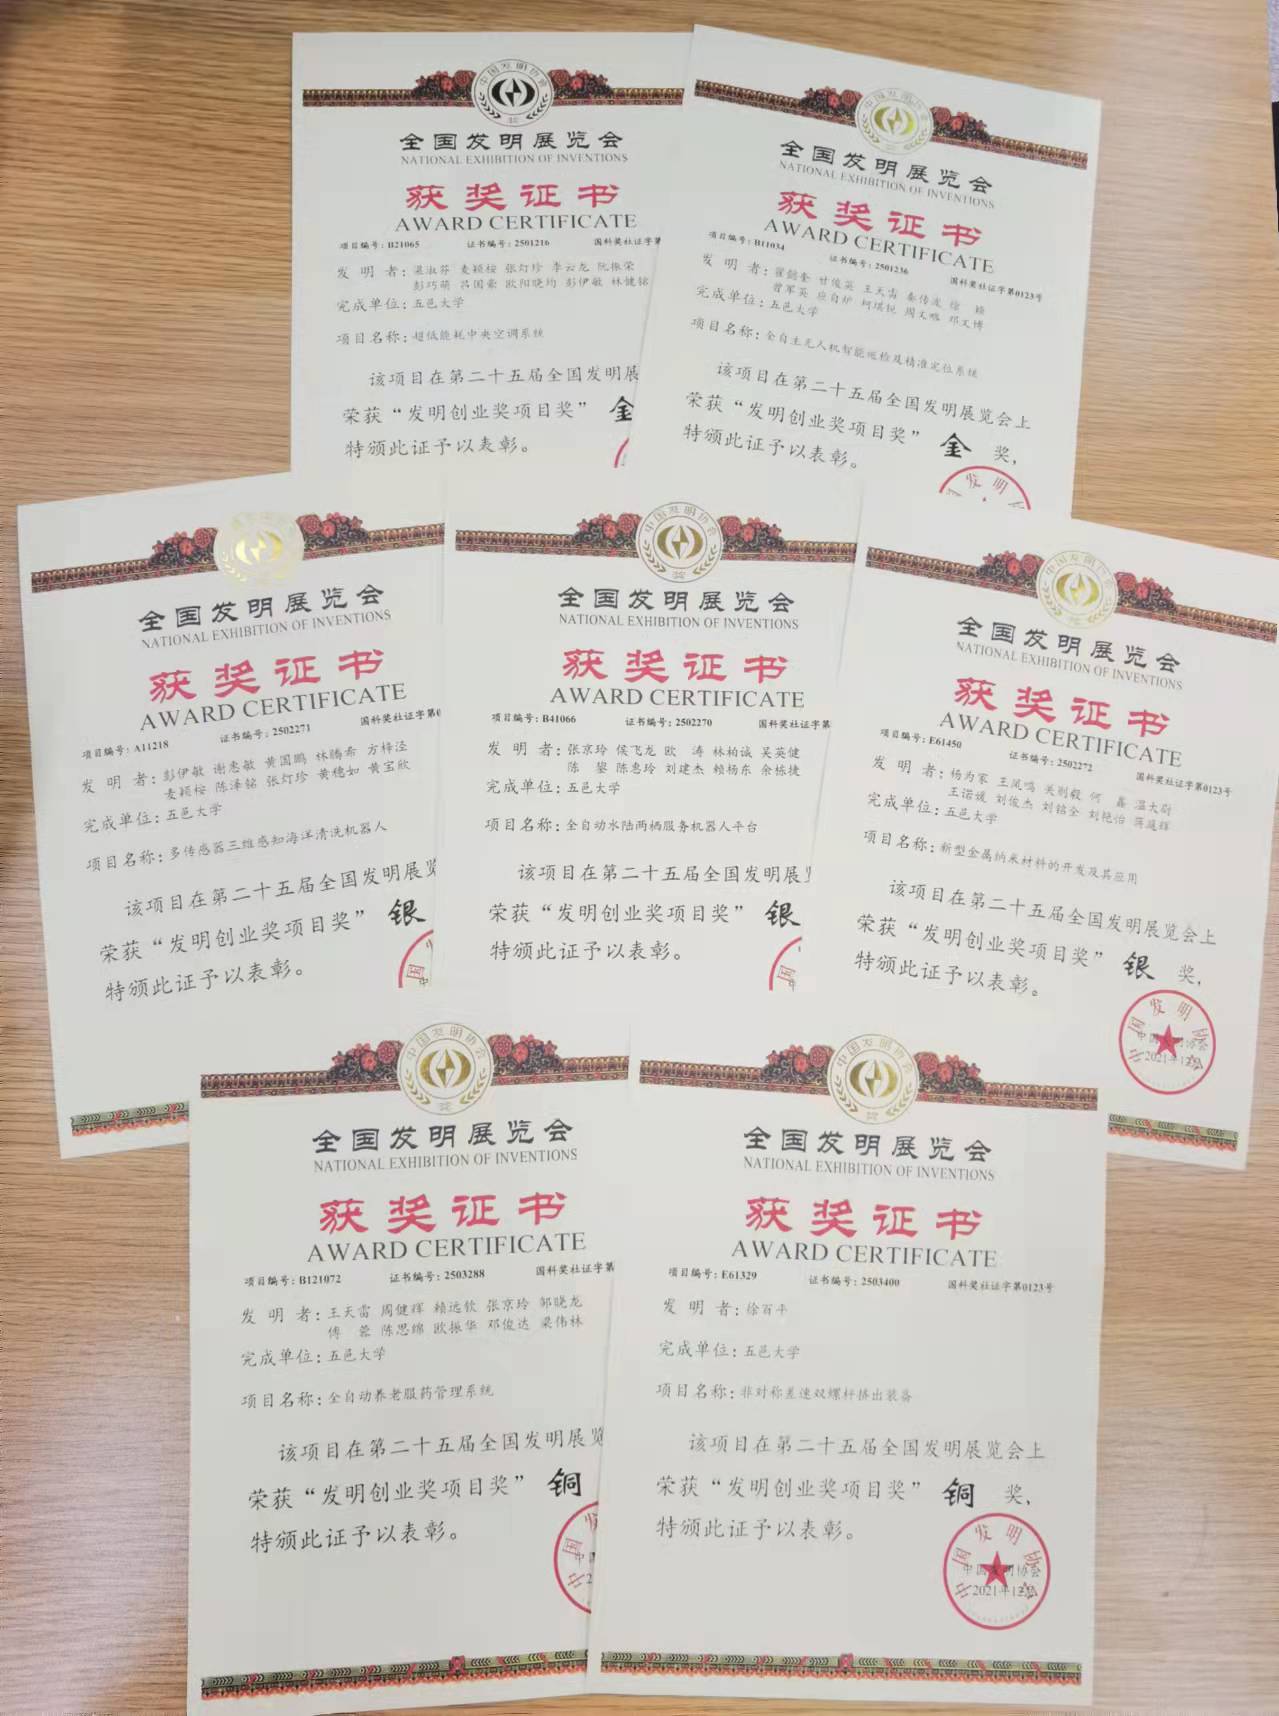 中国发明协会
奖
全国发明展览会
NATIONAL EXHIBITION OF INVENTIONS
获奖证书
AWARD CERTIFICATE
项目编号:B21065 证书编号:2501216 国科奖社证字第
发明者:温淑芬 麦颖桉 张灯珍 李云龙 阮振荣
彭巧萌 吕国豪 欧阳晓均 彭伊敏 林健铭
完成单位:五邑大学
项目名称:超低能耗中央空调系统
该项目在第二十五届全国发明展
荣获“发明创业奖项目奖” 金
特颁此证予以表彰。
全国发明展览会
NATIONAL EXHIBITION OF INVENTIONS
获奖证书
AWARD CERTIFICATE
项目编号:B11034 证书编号:2501236 国科奖社证字第0123号
发明者:翟懿奎 甘俊英 王天雷 秦传波 徐颖
曾军英 应自炉 柯琪锐 周文略 邓文博
完成单位:五邑大学
项目名称:全自主无人机智能巡检及精准定位系统
该项目在第二十五届全国发明展览会上
荣获“发明创业奖项目奖” 金 奖,
特颁此证予以表彰。
国发明
全国发明展览会
NATIONAL EXHIBITION OF INVENTIONS
获奖证书
AWARD CERTIFICATE
项目编号:A11218 证书编号:2502271 国科奖社证字第0
发明者:彭伊敏 谢惠敏 黄国鹏 林腾希 方梓泾
麦颖桉 陈泽铭 张灯珍 黄穗如 黄宝欣
完成单位:五邑大学
项目名称:多传感器三维感知海洋清洗机器人
该项目在第二十五届全国发明展览
荣获“发明创业奖项目奖” 银
特颁此证予以表彰。
中国发明协会
奖
全国发明展览会
NATIONAL EXHIBITION OF INVENTIONS
获奖证书
AWARD CERTIFICATE
项目编号:B41066 证书编号:2502270 国科奖社证字第
发明者:张京玲 侯飞龙 欧涛 林柏诚 吴英健
陈鋆 陈惠玲 刘建杰 赖杨东 余栋捷
完成单位:五邑大学
项目名称:全自动水陆两栖服务机器人平台
该项目在第二十五届全国发明展
荣获“发明创业奖项目奖” 银
特颁此证予以表彰。
全国发明展览会
NATIONAL EXHIBITION OF INVENTIONS
获奖证书
AWARD CERTIFICATE
项目编号:E61450 证书编号:2502272 国科奖社证字第0123号
发明者:杨为家 王凤鸣 关则毅 何鑫 温大尉
王诺媛 刘俊杰 刘铭全 刘艳怡 蒋庭辉
完成单位:五邑大学
项目名称:新型金属纳米材料的开发及其应用
该项目在第二十五届全国发明展览会上
荣获“发明创业奖项目奖” 银 奖,
特颁此证予以表彰。
中国发明协会
中国发明协会
奖
全国发明展览会
NATIONAL EXHIBITION OF INVENTIONS
获奖证书
AWARD CERTIFICATE
项目编号:B121072 证书编号:2503288 国科奖社证字第
发明者:王天雷 周健辉 赖远钦 张京玲 邹晓龙
傅蓉 陈思绵 欧振华 邓俊达 梁伟林
完成单位:五邑大学
项目名称:全自动养老服药管理系统
该项目在第二十五届全国发明展览
荣获“发明创业奖项目奖” 铜
特颁此证予以表彰。
中国发明协会
奖
全国发明展览会
NATIONAL EXHIBITION OF INVENTIONS
获奖证书
AWARD CERTIFICATE
项目编号:E61329 证书编号:2503400 国科奖社证字第0123号
发明者:徐百平
完成单位:五邑大学
项目名称:非对称差速双螺杆挤出装备
该项目在第二十五届全国发明展览会上
荣获“发明创业奖项目奖” 铜 奖,
特颁此证予以表彰。
中国发明协会
中国发明协会